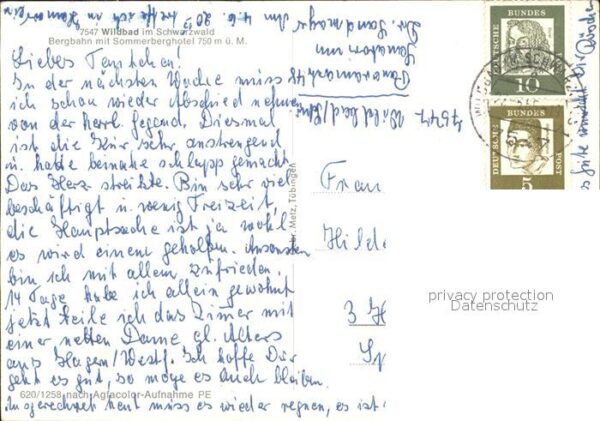 7547 Wildbad im Schwarzwald
Bergbahn mit Sommerberghotel 750 m ü. M.
Liebes Tantchen!
In der nächsten Woche muss
ich schon wieder Abschied nehmen
von der herrl. Gegend. Diesmal
ist die Kur sehr anstrengend
u. hatte beinahe schlapp gemacht.
Das Herz streikte. Bin sehr viel
beschäftigt u. wenig Freizeit,
die Hauptsache ist ja wohl
es wird einem geholfen. Ansonsten
bin ich mit allem zufrieden.
14 Tage habe ich allein gewohnt
jetzt teile ich das Zimmer mit
einer netten Dame gl. Alters
aus Hagen/Westf. Ich hoffe Dir
geht es gut, so möge es auch bleiben.
620/1258 nach Agfacolor-Aufnahme PE
Ausgerechnet heut muss es wieder regnen, es ist
Am 4.6.
Sanatorium
Panoramastr. 48
7547 Wildbad/Schw.
Metz, Tübingen
Frau
Hilde
3 H
DEUTSCHE BUNDES POST
10
DEUTSCHE BUNDES POST
5
privacy protection
Datenschutz